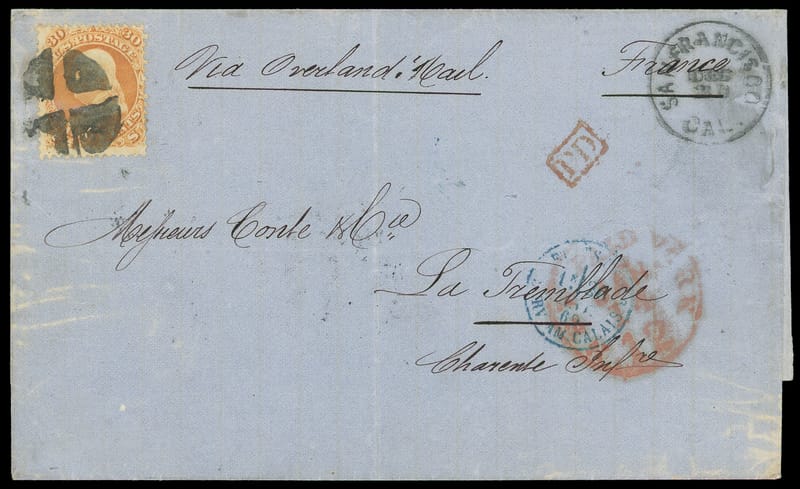 30 U.S. POSTAGE 30
Via Overland Mail.
France
SAN FRANCISCO
DEC
CAL.
PD
Messieurs Conte & Cie
La Tremblade
69
CALAIS
Charente Infre
12